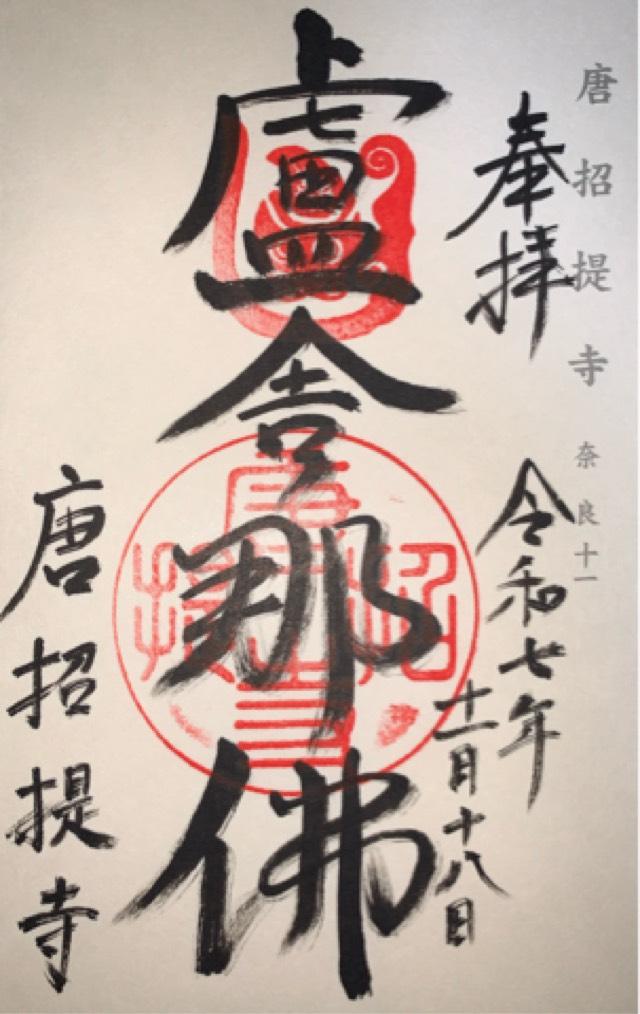 唐招提寺 奈良十一
奉拝
令和七年
十一月十八日
盧舎那佛
唐招提寺
唐招提寺